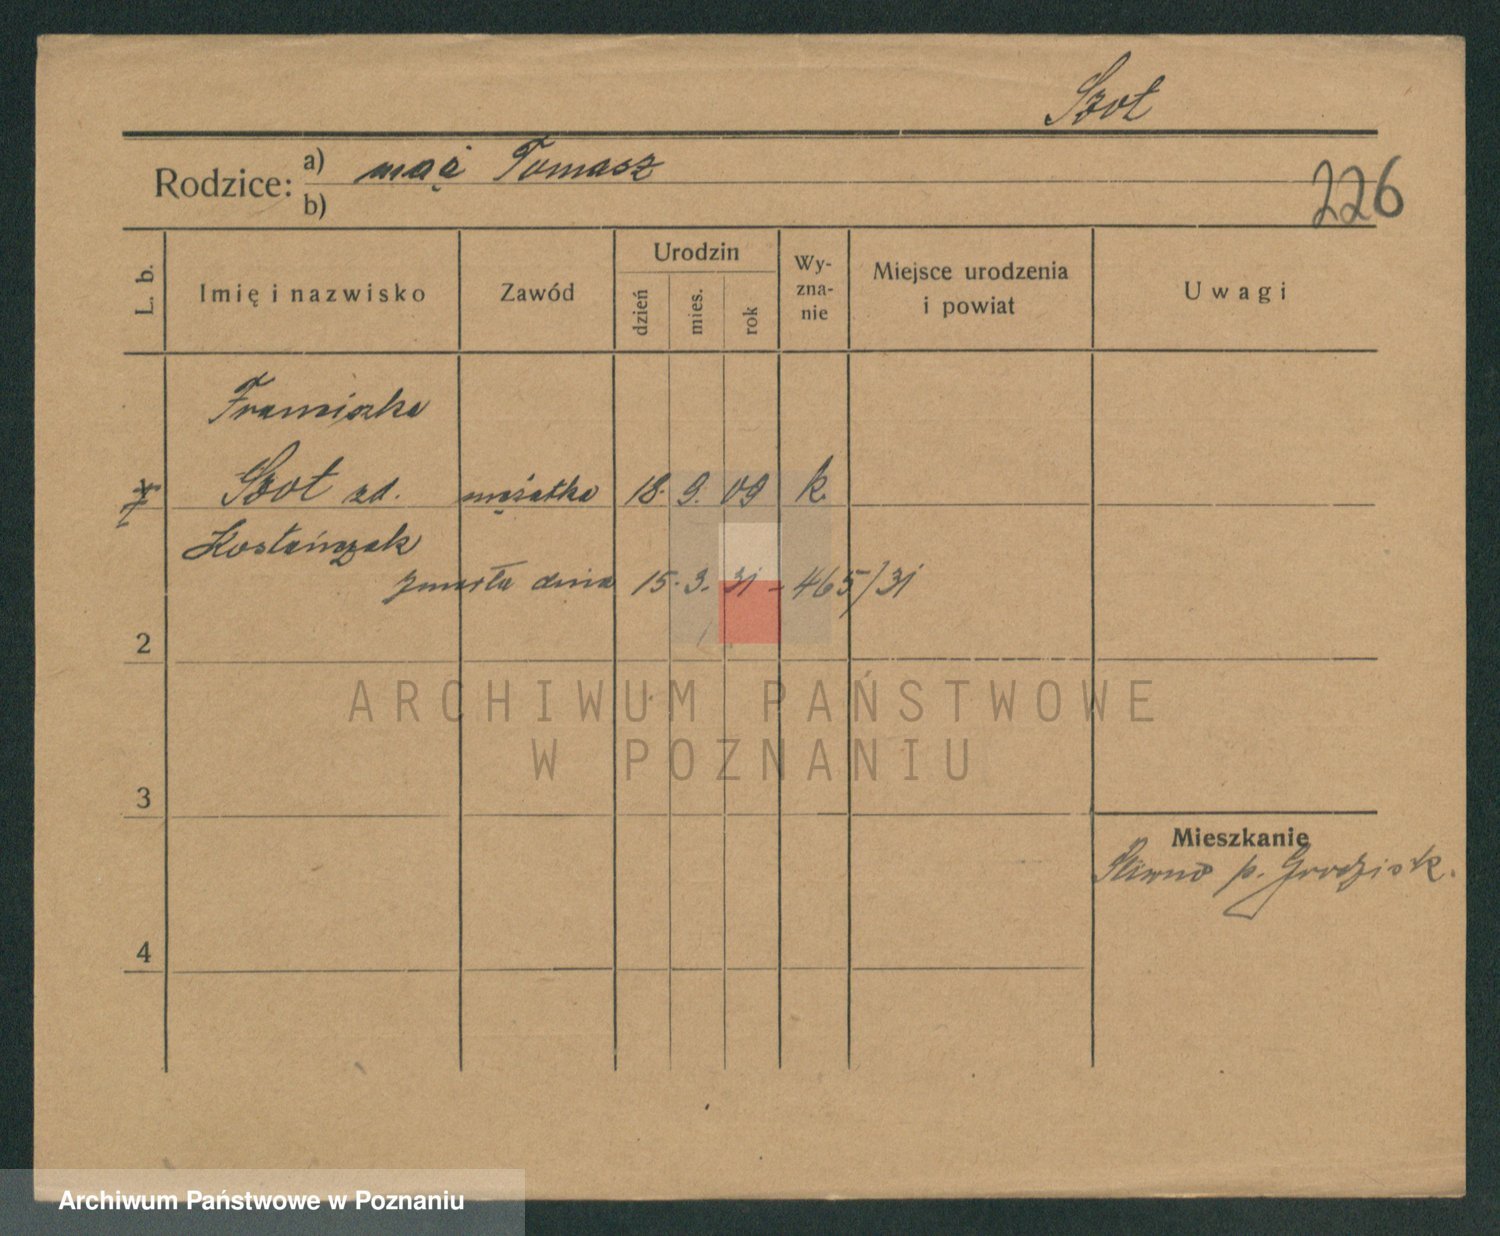 Szot
Rodzice: a) mąż Tomasz
b)
226
L. b. Imię i nazwisko Zawód Urodzin dzień mies. rok Wy-zna-nie Miejsce urodzenia i powiat Uwagi
Franciszka
Szot zd. mężatka 18. 9. 09 k.
Kostańczak
zmarła dnia 15. 3. 31 - 465/31
2
ARCHIWUM PAŃSTWOWE
W POZNANIU
3
Mieszkanie
p. Grodzisk.
4
Archiwum Państwowe w Poznaniu